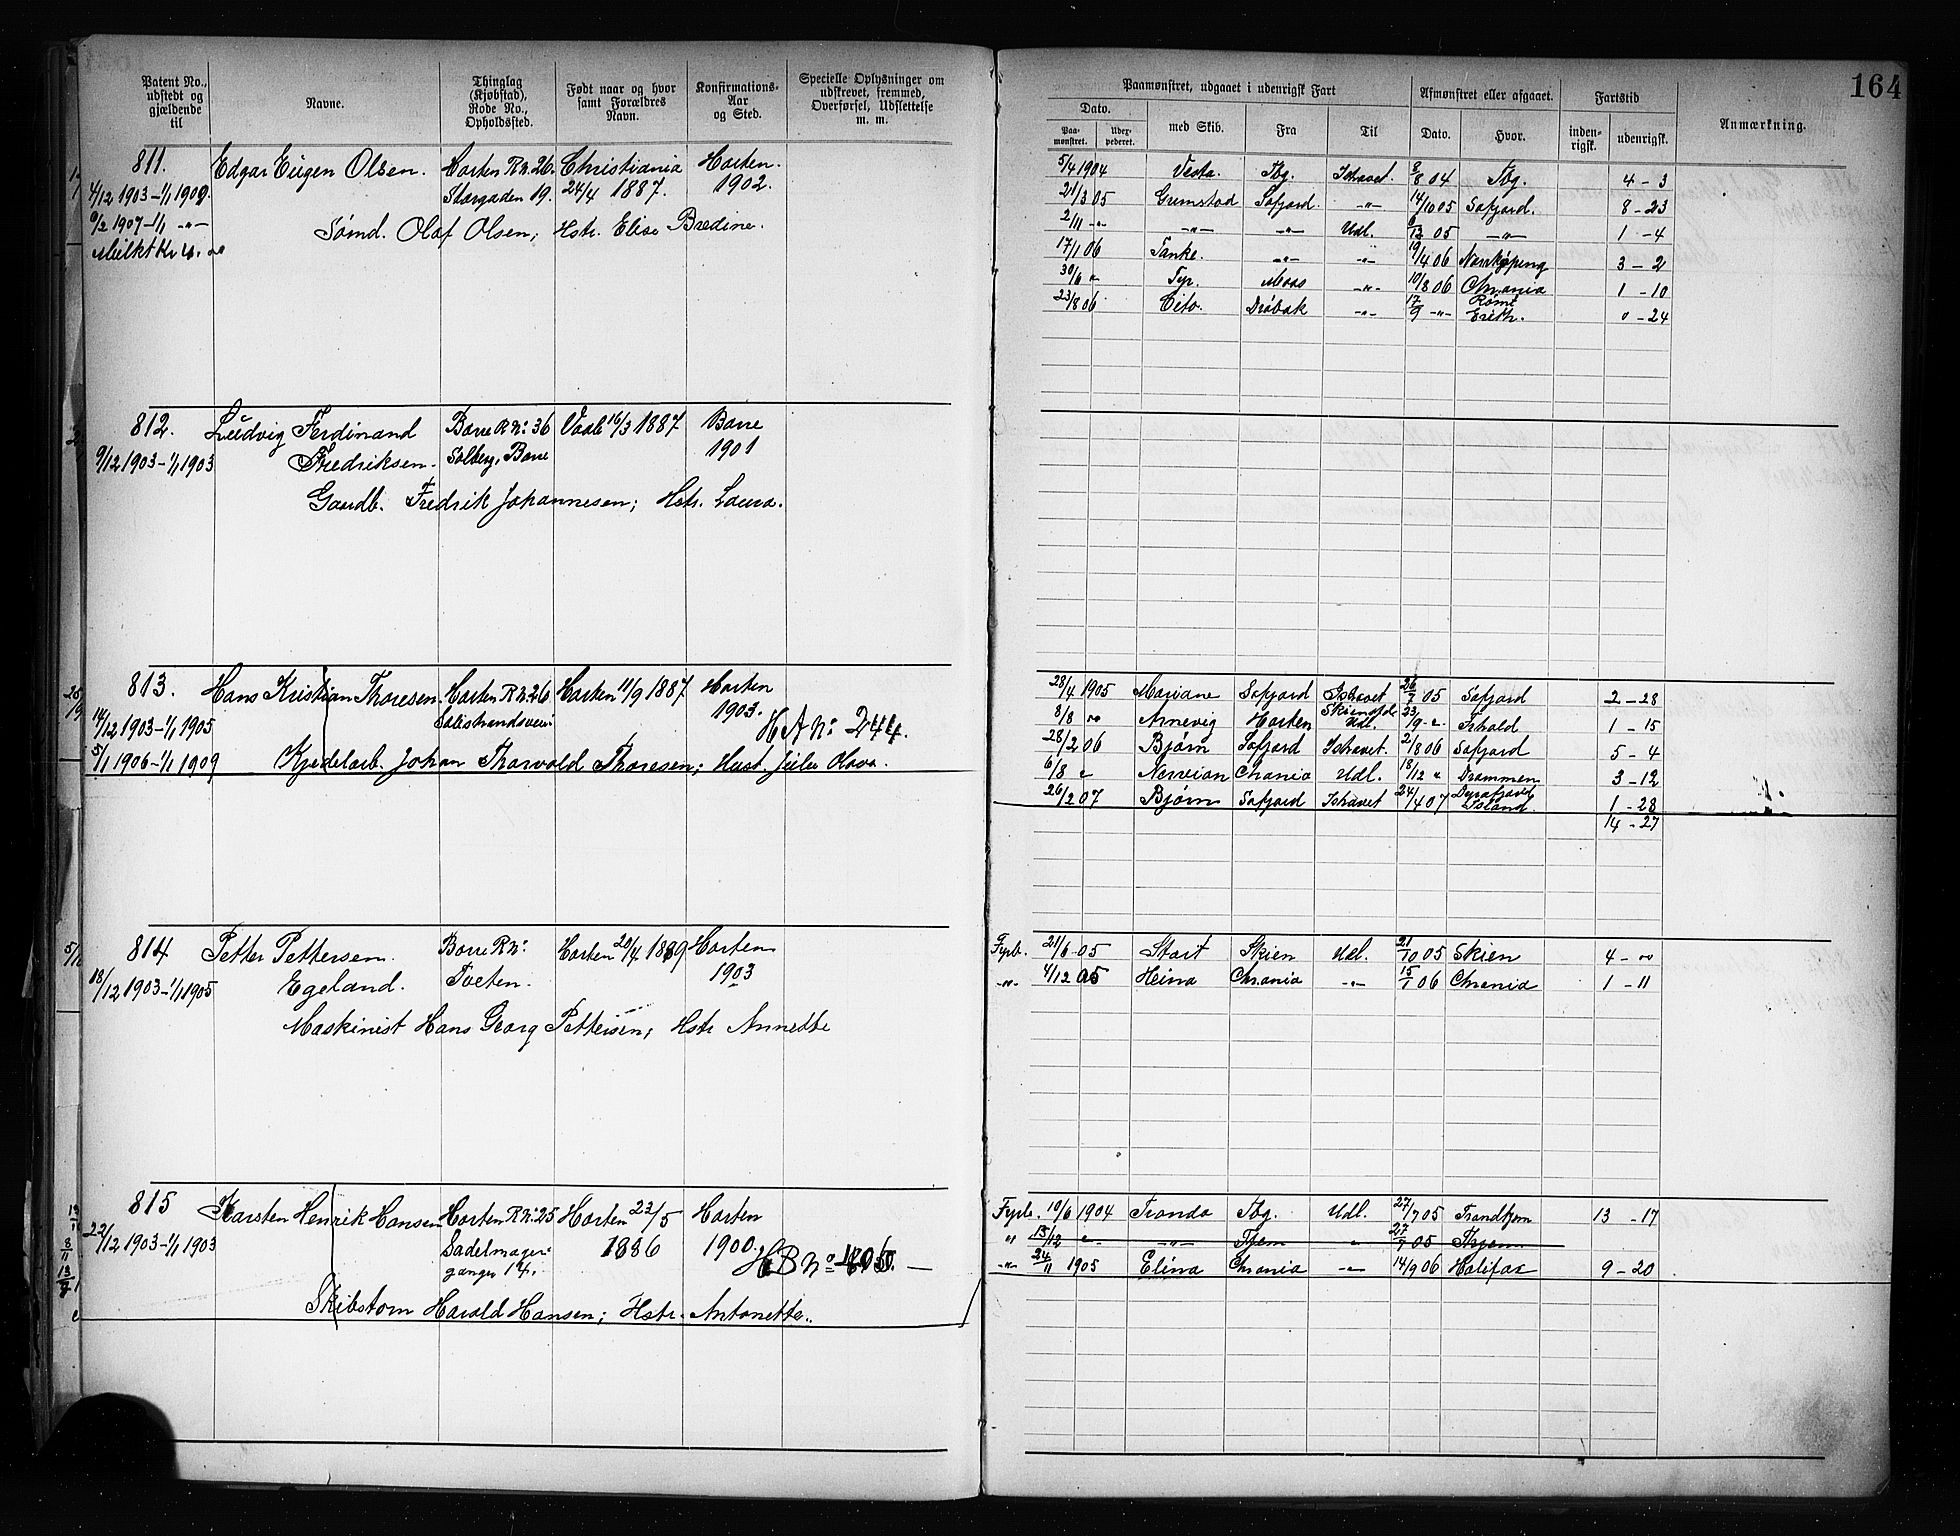 164
Patent No., udstedt og gjældende til
Navne.
Thinglag (Kjøbstad), Rode No., Opholdssted.
Født naar og hvor samt Forældres Navn.
Konfirmations-Aar og Sted.
Specielle Oplysninger om udskrevet, fremmed, Overførsel, Udslettelse m. m.
Paamønstret, udgaaet i udenrigsk Fart
Afmønstret eller afgaaet.
Fartstid
Anmærkning.
Dato.
Paa-mønstret.
med Skib.
Fra
Til
Dato.
Hvor.
inden-rigsk.
udenrigsk.
811. Edgar Eugen Olsen. Horten R.N. 26. Christiania Horten.
4/12 1903-1/1 1909. Storgaden 19. 24/4 1887. 1902.
9/2 1907-1/1 -"-
Sømd. Olaf Olsen; Hstr. Elise Bredine.
5/4 1904 Vesta. Tbg. Ishavet. 8/8 04 Tbg. 4-3
21/3 05 Grimstad Søfjord. -"- 14/10 05 Søfjord. 8-23
2/11 -"- -"- -"- Udl. 05 -"- 1-4
17/1 06 Tanke. -"- -"- 19/4 06 Norrkøping 3-2
30/6 " Tyr. Moss -"- 10/8 06 Chrania 1-10
23/8 06 Cito. Drøbak -"- 17/9 -"- Erith. 0-24
812. Ludvig Ferdinand Borre R.N: 36 Vaale 16/3 1887 Borre
9/12 1903-1/1 1903 Fredriksen. Solberg, Borre 1901
Gaardb. Fredrik Johannesen; Hstr. Laura.
813. Hans Kristian Thoresen. Horten R.N. 26 Horten 11/9 1887 Horten
14/12 1903-1/1 1905 Falkstrandsveien 1903. H A N: 244.
5/1 1906-1/1 1909 Kjedelarb. Johan Thorvald Thoresen; Hust. Julie Olava.
28/4 1905 Mariane Søfjord Ishavet 26/7 05 Søfjord 2-28
8/8 " Arnevig Horten Udl. 23/9 " 1-15
28/2 06 Bjørn Søfjord Ishavet. 2/8 06 Søfjord 5-4
6/8 " Chrania Udl. 18/12 " Drammen 3-12
26/2 07 Bjørn Søfjord Ishavet 24/4 07 Dyrafjord Island. 1-28
14-27
814 Petter Pettersen Borre R.N: Horten 20/4 1889 Horten
18/12 1903-1/1 1905 Egeland. Toeten. 1903
Maskinist Hans Georg Pettersen; Hstr Annette
Fyrb. 21/6 05 Start Skien Udl. 21/10 05 Skien 4-"
-"- 4/12 05 Heina Chrania -"- 15/1 06 Chrania 1-11
815 Karsten Henrik Hansen Horten R.N: 25 Horten 23/5 Horten
22/12 1903-1/1 1903 Sadelmager- 1886 1900. H B No 405.
gangen 14.
Skibstøm Harald Hansen; Hstr. Antonette.
Fyrb. 10/6 1904 Tronda Tbg. Udl. 27/7 05 Trondhjem 13-17
" 15/12 " -"- Thjem " 27/7 05 Thjem
-"- 24/11 1905 Elina Chrania -"- 14/9 06 Halifax 9-20